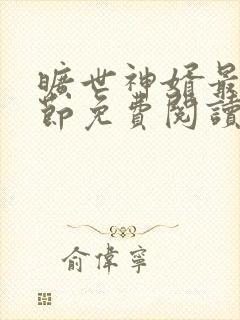 曠世神婿最
節免費閱讀
俞偉寧